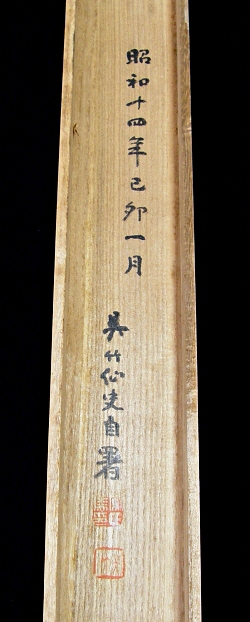 昭和十四年己卯一月
吳竹仙史自署